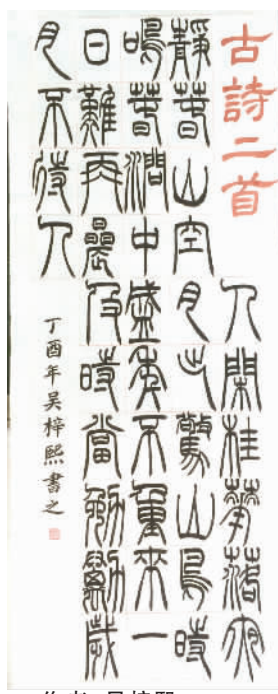 古詩二首
人閑桂華落夜
靜春山空月出驚山鳥時
鳴春澗中盛年不重來一
日難再晨及時當勉勵歲
月不待人
丁酉年吴梓熙書之